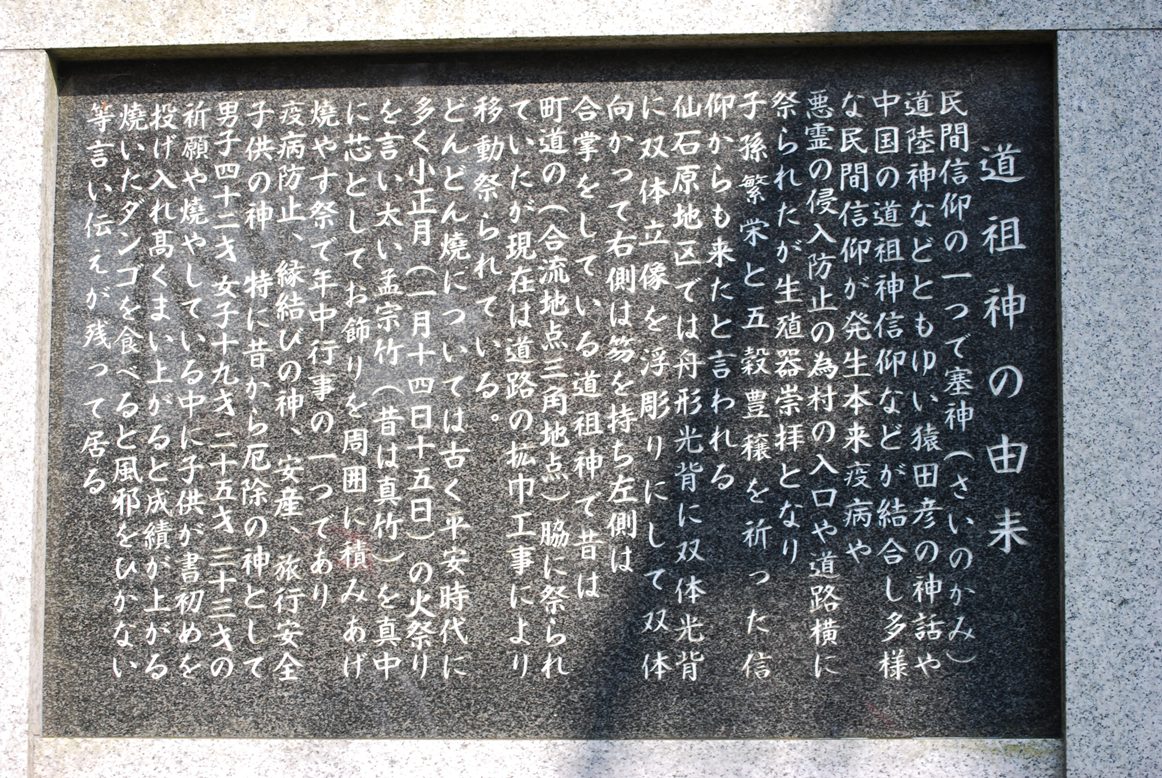 道祖神の由来
民間信仰の一つで塞神（さいのかみ）
道陸神などともゆい猿田彦の神話や
中国の道祖神信仰などが結合し多様
な民間信仰が発生本来疫病や
悪霊の侵入防止の為村の入口や道路横に
祭られたが生殖器崇拝となり
子孫繁栄と五穀豊穣を祈った信
仰からも来たと言われる
仙石原地区では舟形光背に双体光背
に双体立像を浮彫りにして双体
向かって右側は笏を持ち左側は
合掌をしている道祖神で昔は
町道の（合流地点三角地点）脇に祭られ
ていたが現在は道路の拡巾工事により
移動祭られている。
どんどん焼については古く平安時代に
多く小正月（一月十四日十五日）の火祭り
を言い太い孟宗竹（昔は真竹）を真中
に芯としてお飾りを周囲に積みあげ
燒やす祭で年中行事の一つであり
疫病防止、縁結びの神、安産、旅行安全
子供の神　特に昔から厄除の神として
男子四十二才 女子十九才 二十五才 三十三才の
祈願や燒やしている中に子供が書初めを
投げ入れ髙くまい上がると成績が上がる
燒いたダンゴを食べると風邪をひかない
等言い伝えが残って居る